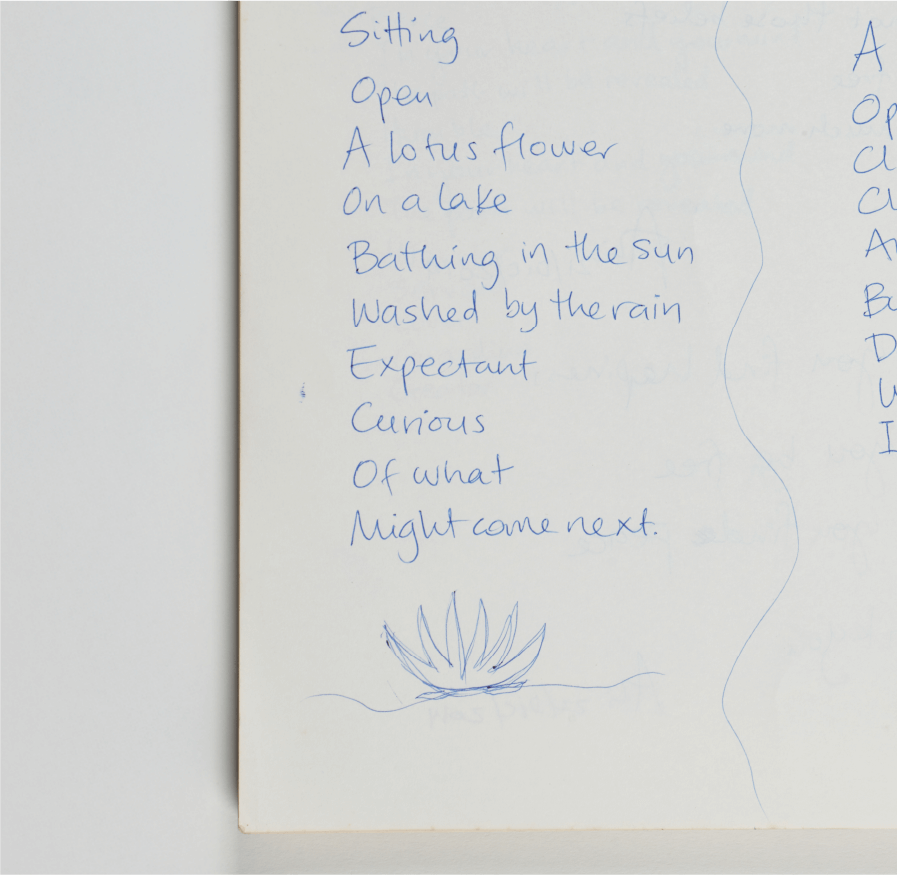 Sitting
Open
A lotus flower
On a lake
Bathing in the sun
Washed by the rain
Expectant
Curious
Of what
Might come next.
A
Op
Cl
Cl
Bu
D
I